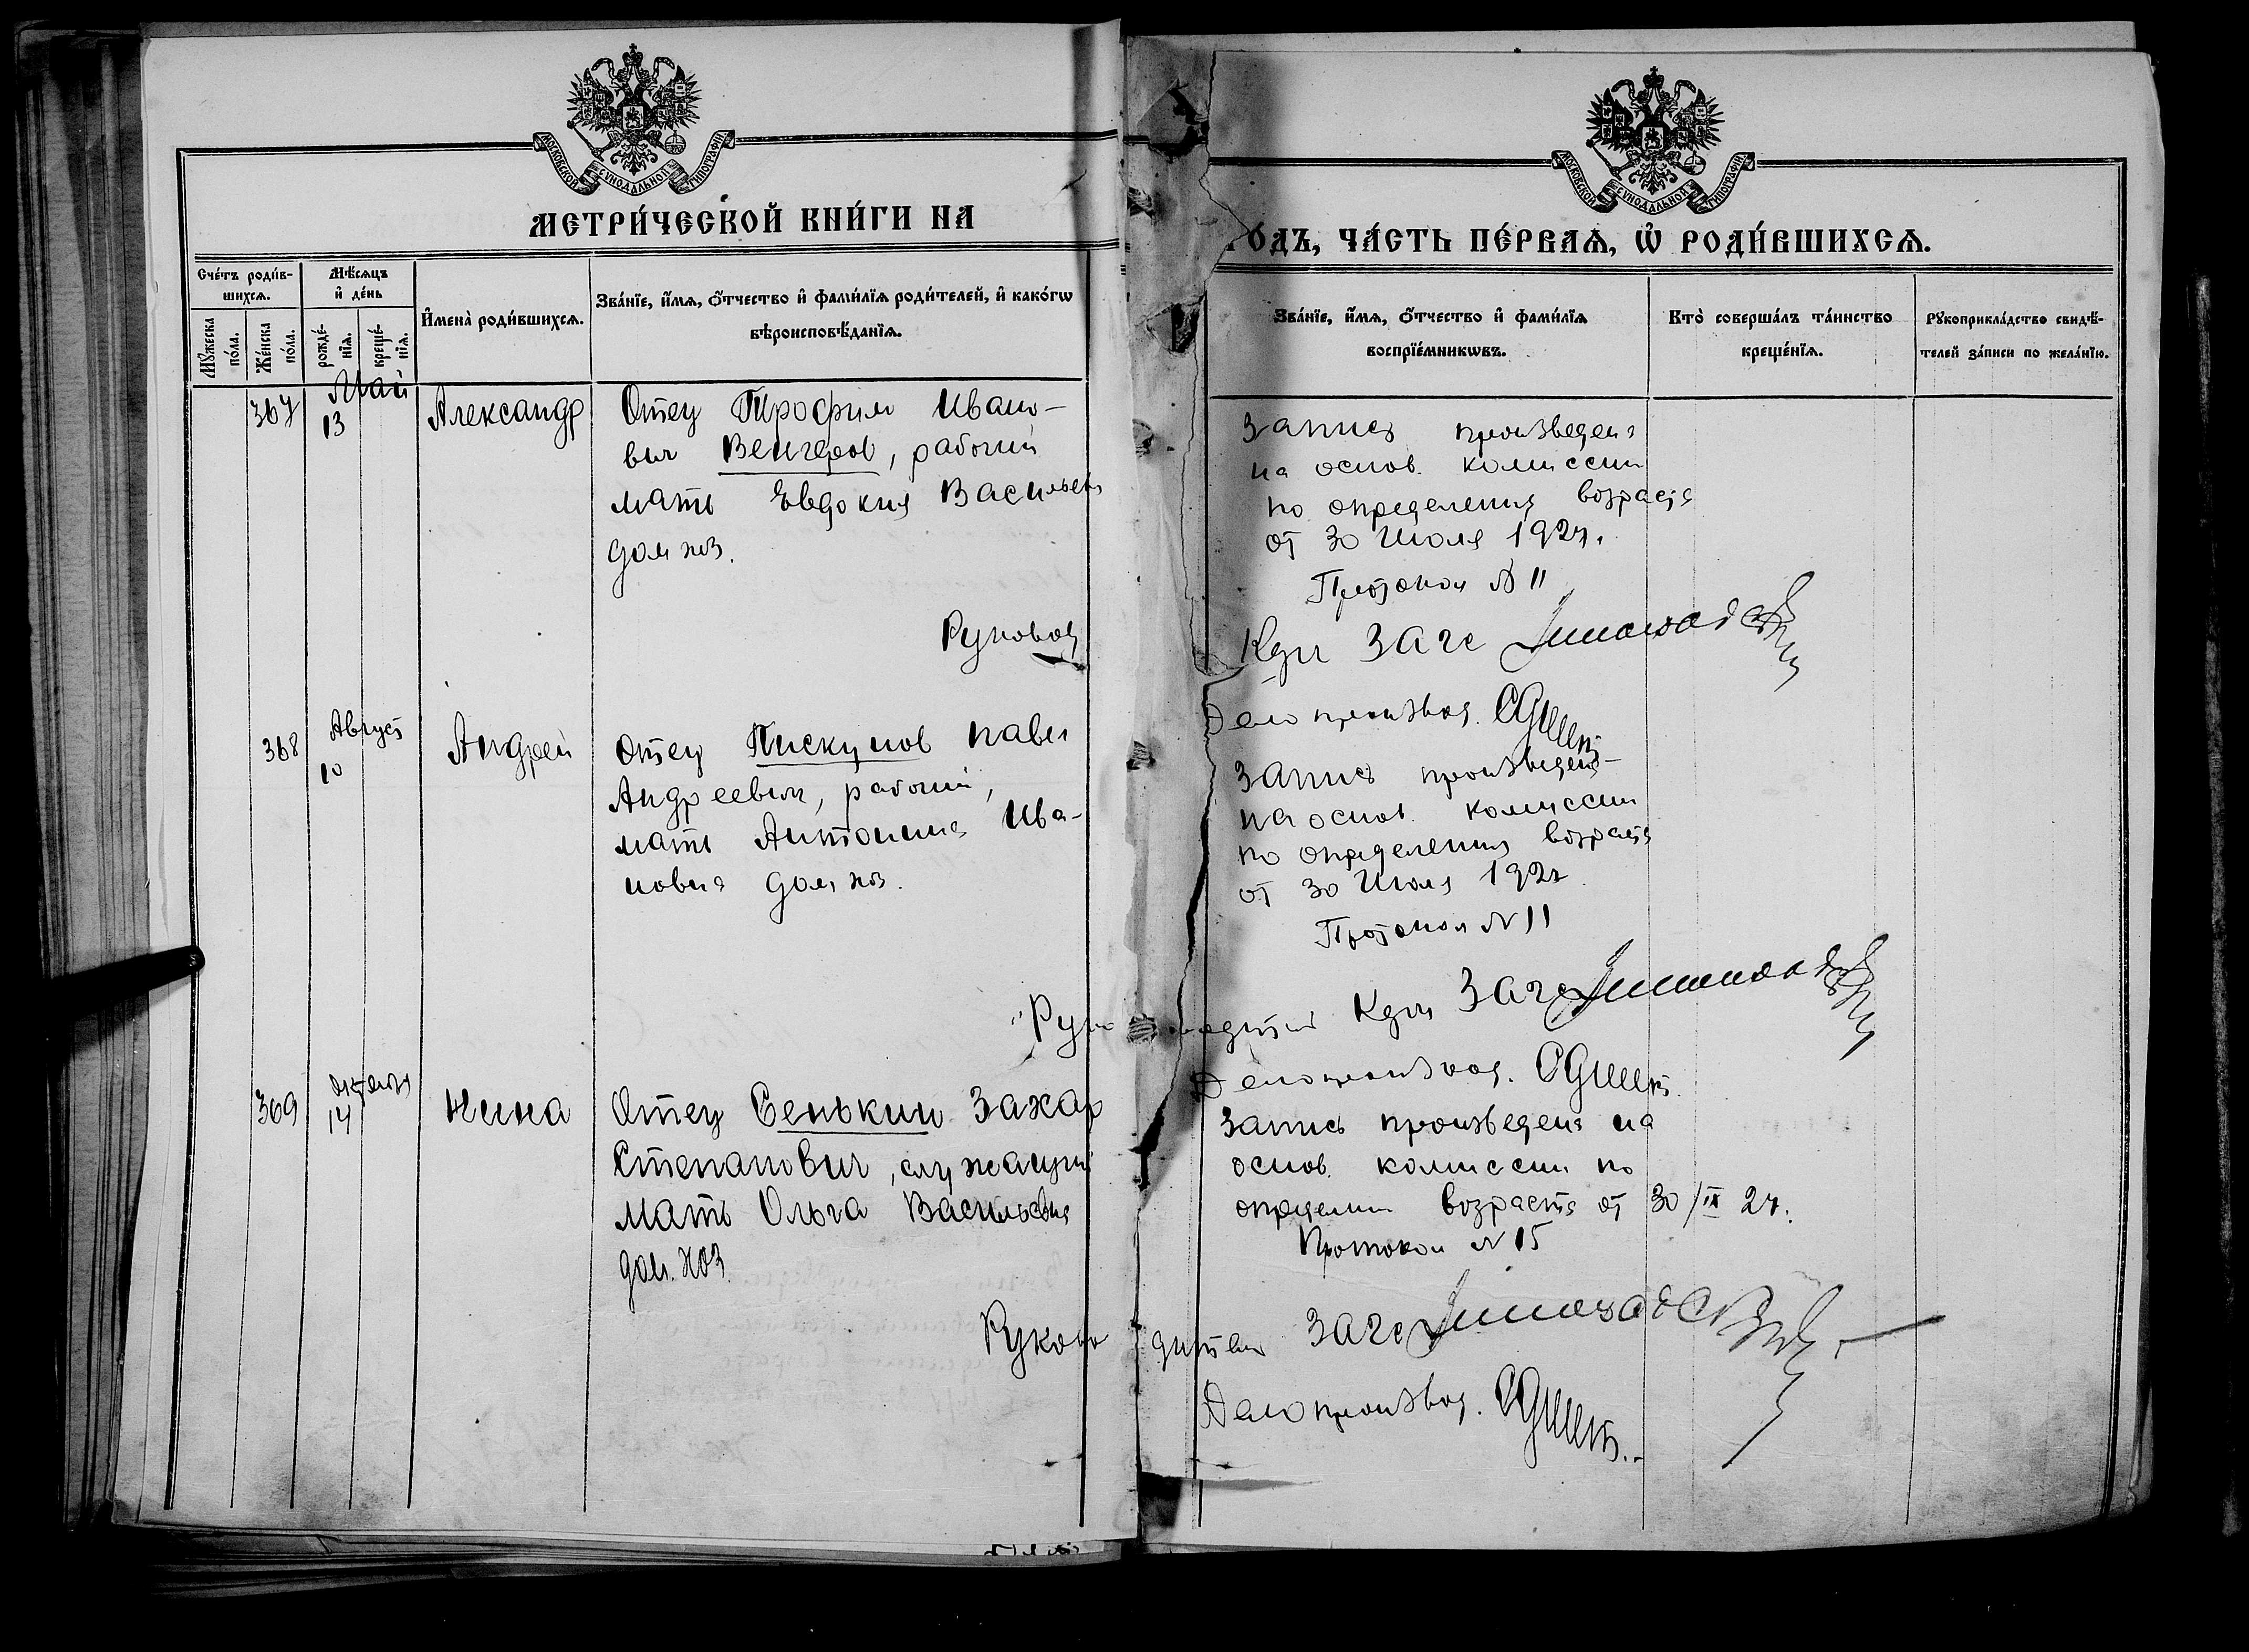 МОСКОВСКОЙ СѴНОДАЛЬНОЙ ТИПОГРАФІИ
МЕТРИ́ЧЕСКОЙ КНИ́ГИ НА
Сче́тъ роди́в-
шихсѧ.
Мꙋ́жеска по́ла.
Же́нска по́ла.
Мѣ́сѧцъ
и҆ де́нь
рожде́-
нїѧ.
креще́-
нїѧ.
И҆мена̀ роди́вшихсѧ.
Зва́нїе, и҆́мѧ, ѻ҆́тчество и҆ фами́лїѧ роди́телей, и҆ како́гѡ
вѣроисповѣ́данїѧ.
367
Май
13
Александр
Отец Трофим Ивано-
вич Венгеров, рабочий
мать Евдокия Васильев
дом хоз.
Руковод
368
Август
10
Андрей
Отец Пискунов Павел
Андреевич, рабочий,
мать Антонина Ива-
новна дом хоз.
Руко
369
Октября
14
Нина
Отец Сенькин Захар
Степанович, служащий
Мать Ольга Васильевна
дом. хоз.
Руково
МОСКОВСКОЙ СѴНОДАЛЬНОЙ ТИПОГРАФІИ
ГО́ДЪ, ЧА́СТЬ ПЕ́РВАѦ, Ѽ РОДИ́ВШИХСѦ.
Зва́нїе, и҆́мѧ, ѻ҆́тчество и҆ фами́лїѧ
воспрїе́мникѡвъ.
Кто̀ соверша́лъ та́инство
креще́нїѧ.
Рꙋкоприкла́дство свидѣ́-
телей за́писи по жела́нїю.
Запись произведена
на основ. комиссии
по определения возраста
от 30 Июля 1927.
Протокол № 11
Кдм Загс
Делопроизвод.
Запись произведена
на основ. комиссии
по определения возраста
от 30 Июля 1927
Протокол № 11
водител Кдм Загс
Делопроизвод.
Запись произведена на
основ. комиссии по
определни возраста от 30/IX 27.
Протокол № 15
дител Загс
Делопроизвод.